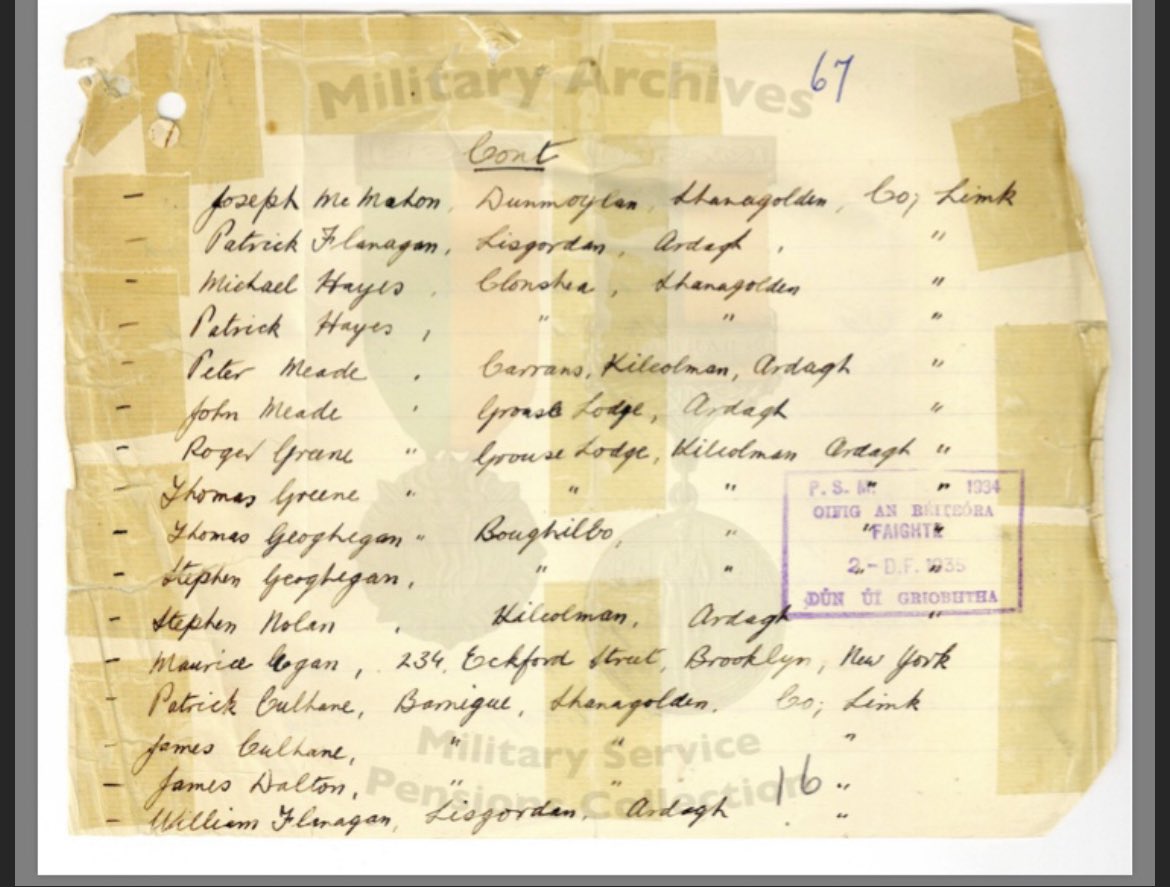 67
Military Archives
Cont
- Joseph McMahon, Dunmoylan, Shanagolden, Co; Limk
- Patrick Flanagan, Lisgordan, Ardagh, "
- Michael Hayes, Clonshea, Shanagolden "
- Patrick Hayes, " " "
- Peter Meade, Carrans, Kilcolman, Ardagh "
- John Meade, Grouse Lodge, Ardagh "
- Roger Greene " Grouse Lodge, Kilcolman Ardagh "
- Thomas Greene " " " " "
- Thomas Geoghegan " Boughilbo, " " "
- Stephen Geoghegan, " " " "
- Stephen Nolan, Kilcolman, Ardagh "
- Maurice Cogan, 234, Eckford Street, Brooklyn, New York
- Patrick Culhane, Barrigue, Shanagolden, Co; Limk
- James Culhane, " " "
- James Dalton, " " "
- William Flanagan, Lisgordan, Ardagh "
P. S. M. 1934
OIFIG AN RÉITEÓRA
FAIGHTE
2 - D.F. 1935
DÚN UÍ GRIOBHTHA
16
Military Service
Pensions Collection